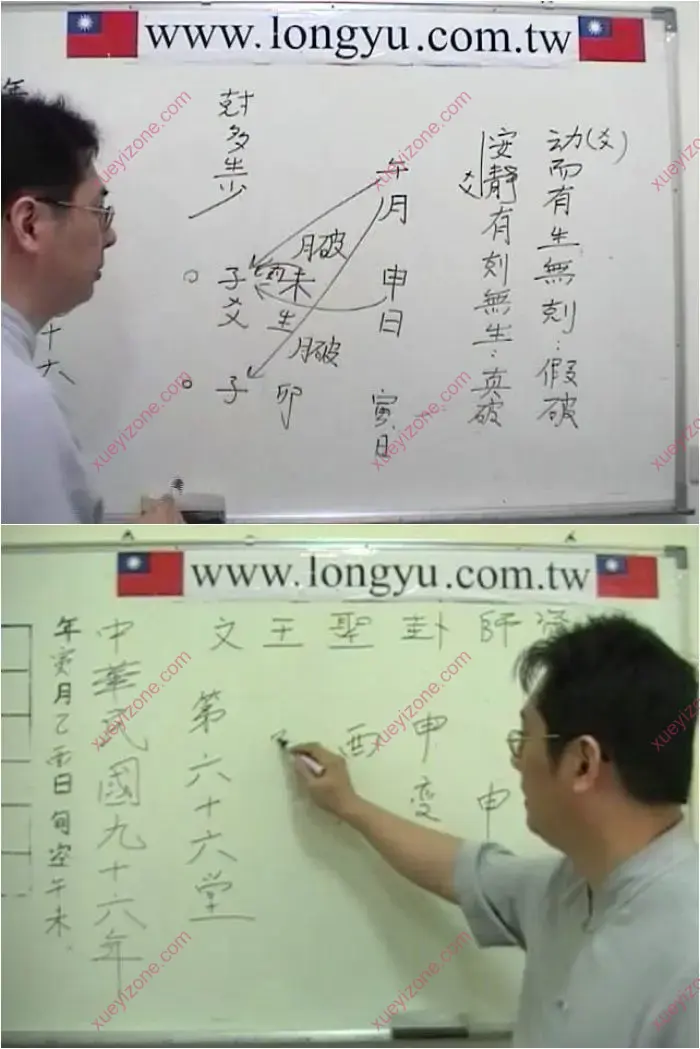 www.longyu.com.tw
动(爻)而有生無剋:假破
安靜爻有剋無生:真破
午月
申日
寅日
月破
未
子爻
生
月破
子
卯
多生步
十六
www.longyu.com.tw
文王聖卦師資
中華民國九十六年
第六十六堂
年寅月乙酉日旬空午未
申變
申
酉
xueyizone.com